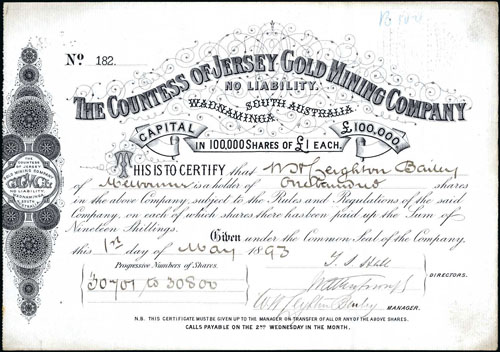 No. 182.
THE COUNTESS OF JERSEY GOLD MINING COMPANY
NO LIABILITY.
WADNAMINGA SOUTH AUSTRALIA
CAPITAL £100,000.
IN 100,000 SHARES OF £1 EACH.
THE COUNTESS OF JERSEY GOLD MINING COMPANY
NO LIABILITY
WADNAMINGA
THIS IS TO CERTIFY that W H Leighton Bailey
of Melbourne is a holder of One hundred shares
in the above Company, subject to the Rules and Regulations of the said
Company, on each of which shares there has been paid up the Sum of
Nineteen Shillings.
Given under the Common Seal of the Company,
this 1st day of May 1893
Progressive Numbers of Shares.
30701 to 30800
DIRECTORS.
MANAGER.
N.B. THIS CERTIFICATE MUST BE GIVEN UP TO THE MANAGER ON TRANSFER OF ALL OR ANY OF THE ABOVE SHARES.
CALLS PAYABLE ON THE 2ND WEDNESDAY IN THE MONTH.